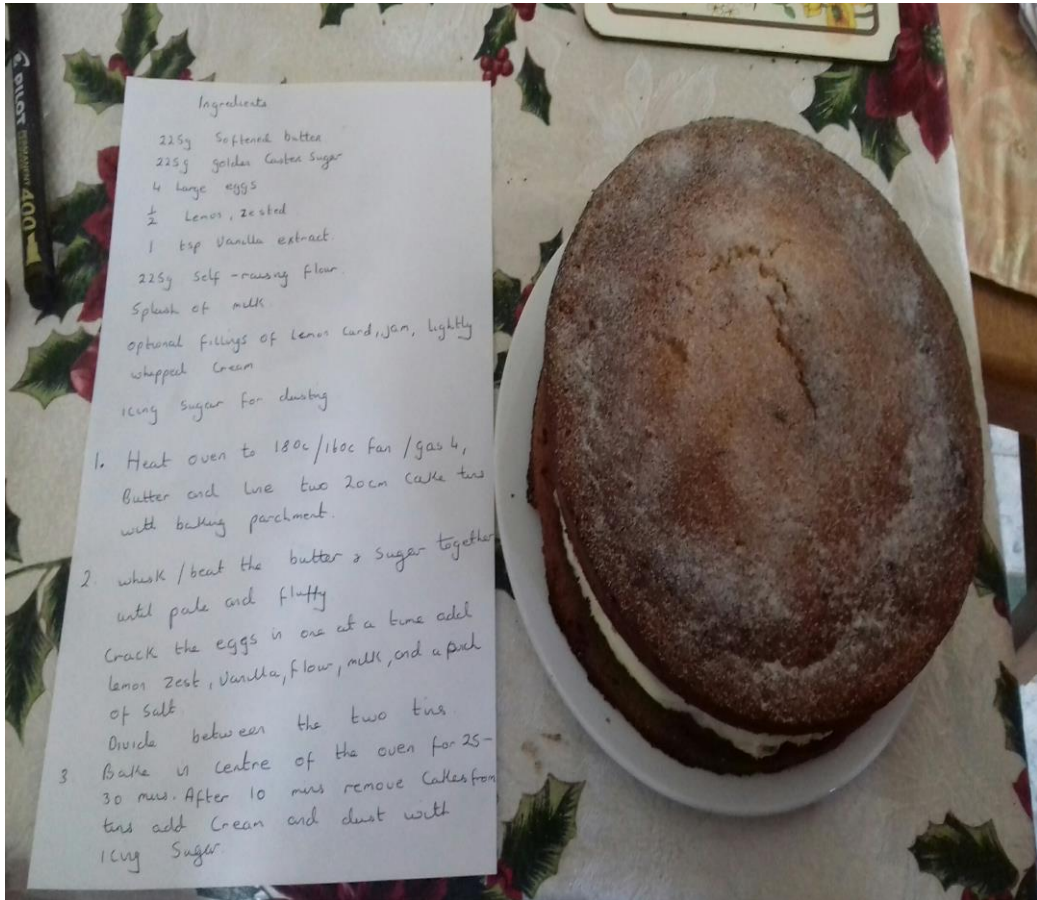 PILOT
400
Ingredients
225g Softened butter
225g golden Caster Sugar
4 Large eggs
½ Lemon, zested
1 tsp Vanilla extract.
225g Self-raising flour.
Splash of milk
optional fillings of Lemon Curd, jam, lightly
whipped Cream
Icing Sugar for dusting
1. Heat oven to 180c/160c fan/gas 4,
Butter and line two 20cm Cake tins
with baking parchment.
2. whisk/beat the butter & Sugar together
until pale and fluffy
Crack the eggs in one at a time add
lemon zest, Vanilla, flour, milk, and a pinch
of Salt
Divide between the two tins.
3 Bake in centre of the oven for 25-
30 mins. After 10 mins remove Cakes from
tins add Cream and dust with
Icing Sugar